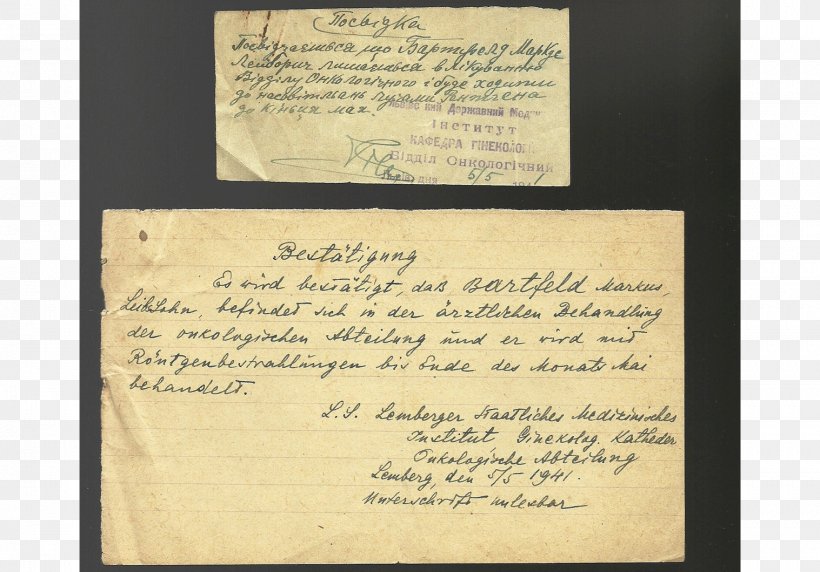 Посвідка
Посвідчається що Бартфельд Маркус
Лейбович лишається в лікуванню
Відділу Онкологічного і буде ходити
до насвітлень лучами Рентгена
до кінця мая.
Львівский Державний Мед
Інститут
КАФЕДРА ГІНЕКОЛОГІ
Відділ Онкологічний
дня 5/5 1941
Bestätigung
Es wird bestätigt, daß Bartfeld Markus,
Leib-Sohn, befindet sich in der ärztlichen Behandlung
der onkologischen Abteilung und er wird mit
Röntgenbestrahlungen bis Ende des Monats Mai
behandelt.
L.S. Lemberger Staatliches Medizinisches
Institut, Ginekolog. Katheder
Onkologische Abteilung
Lemberg, den 5/5 1941.
Unterschrift unlesbar